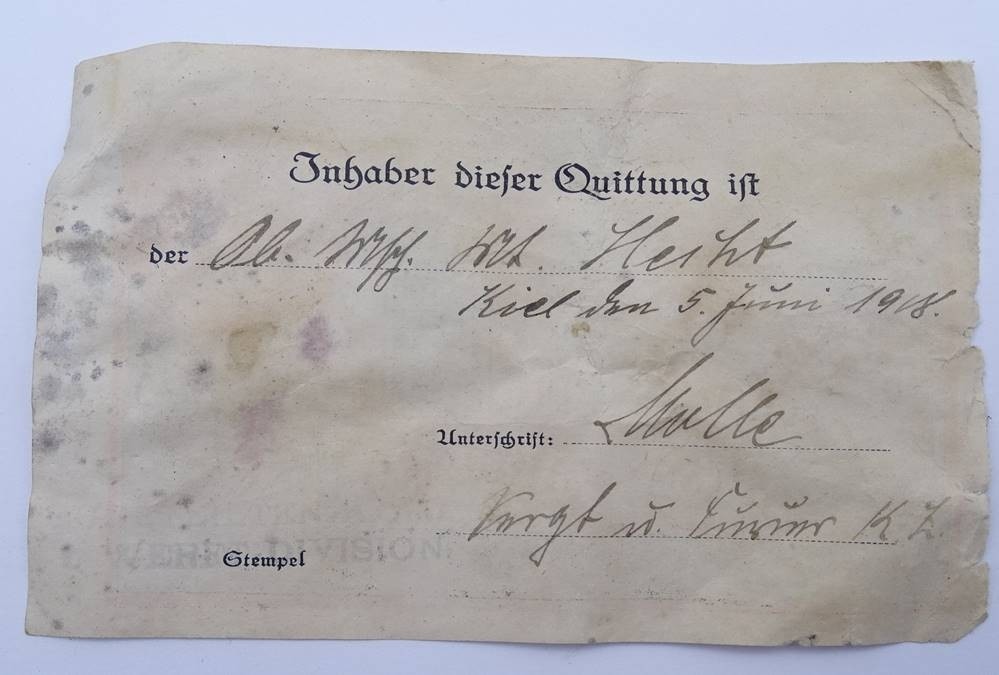 Inhaber dieser Quittung ist
der Ob. Mtsch. Hecht
Kiel den 5. Juni 1918.
Unterschrift: Molle
Sergt u. K. Z.
Stempel